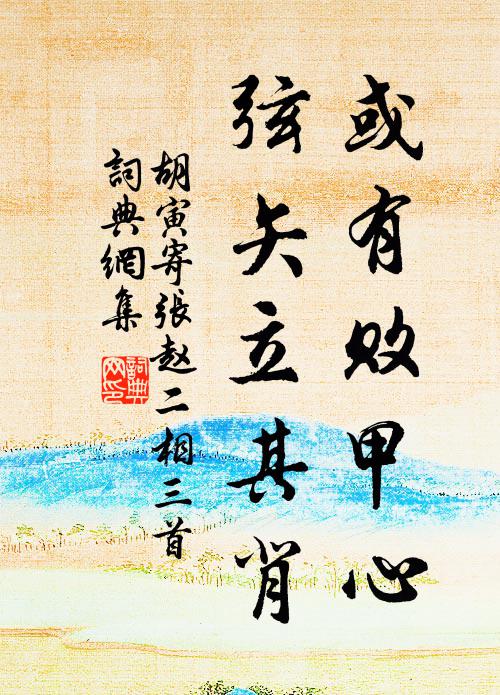 或有败甲心
弦矢立其背
胡寅寄張赵二相三首
詞典網集
詞典网印